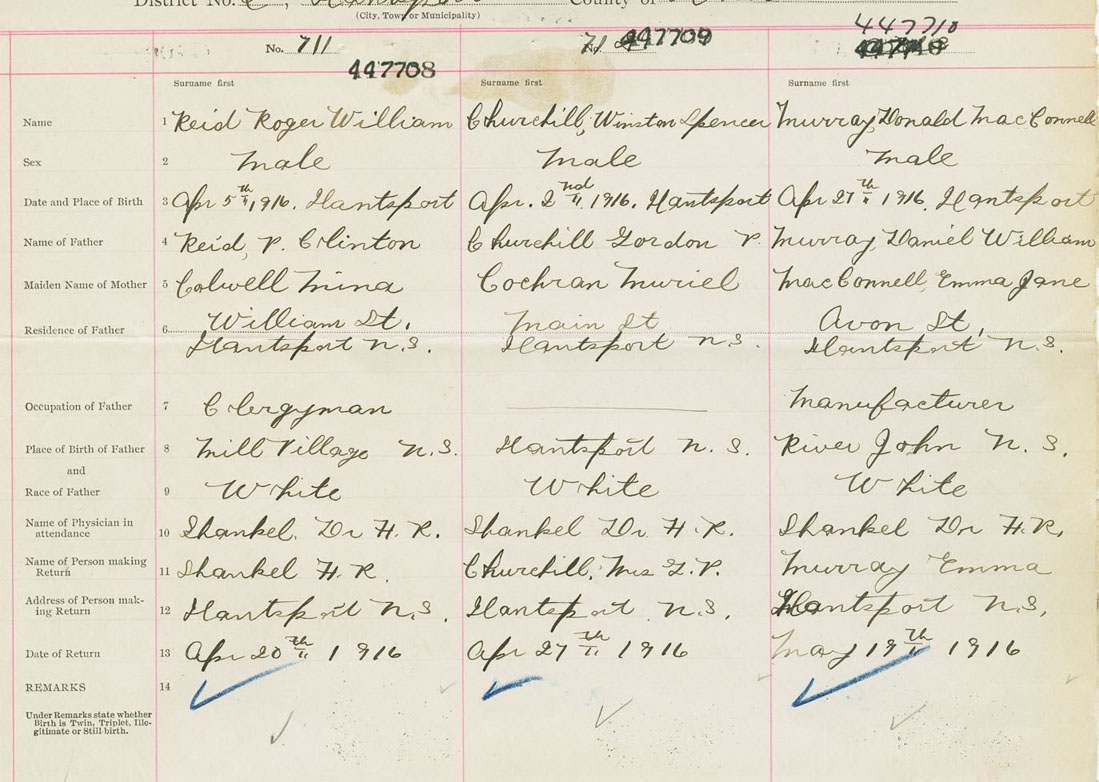 District No. 2, Hantsport County of
(City, Town or Municipality)
No. 711 No. 447709 447710
447708
Surname first Surname first Surname first
Name 1 Reid Roger William Churchill, Winston Spencer Murray, Donald MacConnell
Sex 2 Male Male Male
Date and Place of Birth 3 Apr 5th, 1916. Hantsport Apr. 2nd 1916. Hantsport Apr 27th 1916. Hantsport
Name of Father 4 Reid, P. Clinton Churchill Gordon P. Murray, Daniel William
Maiden Name of Mother 5 Colwell Mina Cochran Muriel MacConnell, Emma Jane
Residence of Father 6 William St. Main St Avon St.
Hantsport N.S. Hantsport N.S. Hantsport N.S.
Occupation of Father 7 Clergyman Manufacturer
Place of Birth of Father 8 Mill Village N.S. Hantsport N.S. River John N.S.
and
Race of Father 9 White White White
Name of Physician in
attendance 10 Shankel. Dr H.R. Shankel Dr. H.R. Shankel Dr H.R.
Name of Person making
Return 11 Shankel H.R. Churchill, Mrs G.P. Murray Emma
Address of Person mak-
ing Return 12 Hantsport N.S. Hantsport N.S. Hantsport N.S.
Date of Return 13 Apr 20th 1916 Apr 27th 1916 May 19th 1916
REMARKS 14
Under Remarks state whether
Birth is Twin, Triplet, Ille-
gitimate or Still-birth.